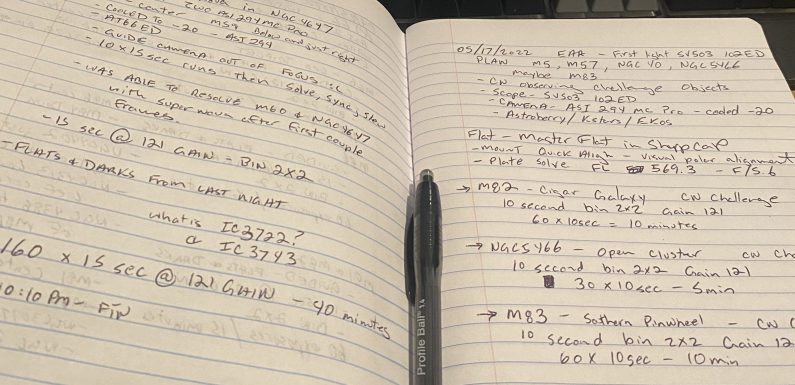 in NGC 4647
center Two ASI 294 MC Pro
M59 Below and just right
- COOLED TO -20 - ASI 294
- AT66ED
- GUIDE CAMERA OUT OF FOCUS :(
- 10x15 sec runs then solve, sync, slew
- WAS ABLE TO RESOLVE M60 & NGC 4647
with supernova after first couple
frames
- 15 sec @ 121 GAIN - BIN 2x2
- FLATS & DARKS FROM LAST NIGHT
What is IC3722?
a IC3743
160 x 15 sec @ 121 GAIN - 40 minutes
10:10 Pm - FIN
Profile Ball 1.4
05/17/2022 EAA - First light SV503 102ED
PLAN M5, M57, NGC 40, NGC 5466
maybe M83
- CN observing challenge objects
- Scope - SV503 102ED
- CAMERA - ASI 294 MC Pro - cooled -20
- Astroberry / Kstars / EKOS
Flat - Master Flat in SharpCap
- mount Quick Align - visual polar alignment
- Plate solve FL 569.3 - F/5.6
→ M82 - Cigar Galaxy CN Challenge
10 second bin 2x2 Gain 121
60 x 10sec = 10 minutes
→ NGC5466 - Open Cluster CN Ch
10 second bin 2x2 Gain 121
30 x 10sec - 5min
→ M83 - Sothern Pinwheel - CN C
10 second bin 2x2 Gain 12
60x 10sec - 10 min